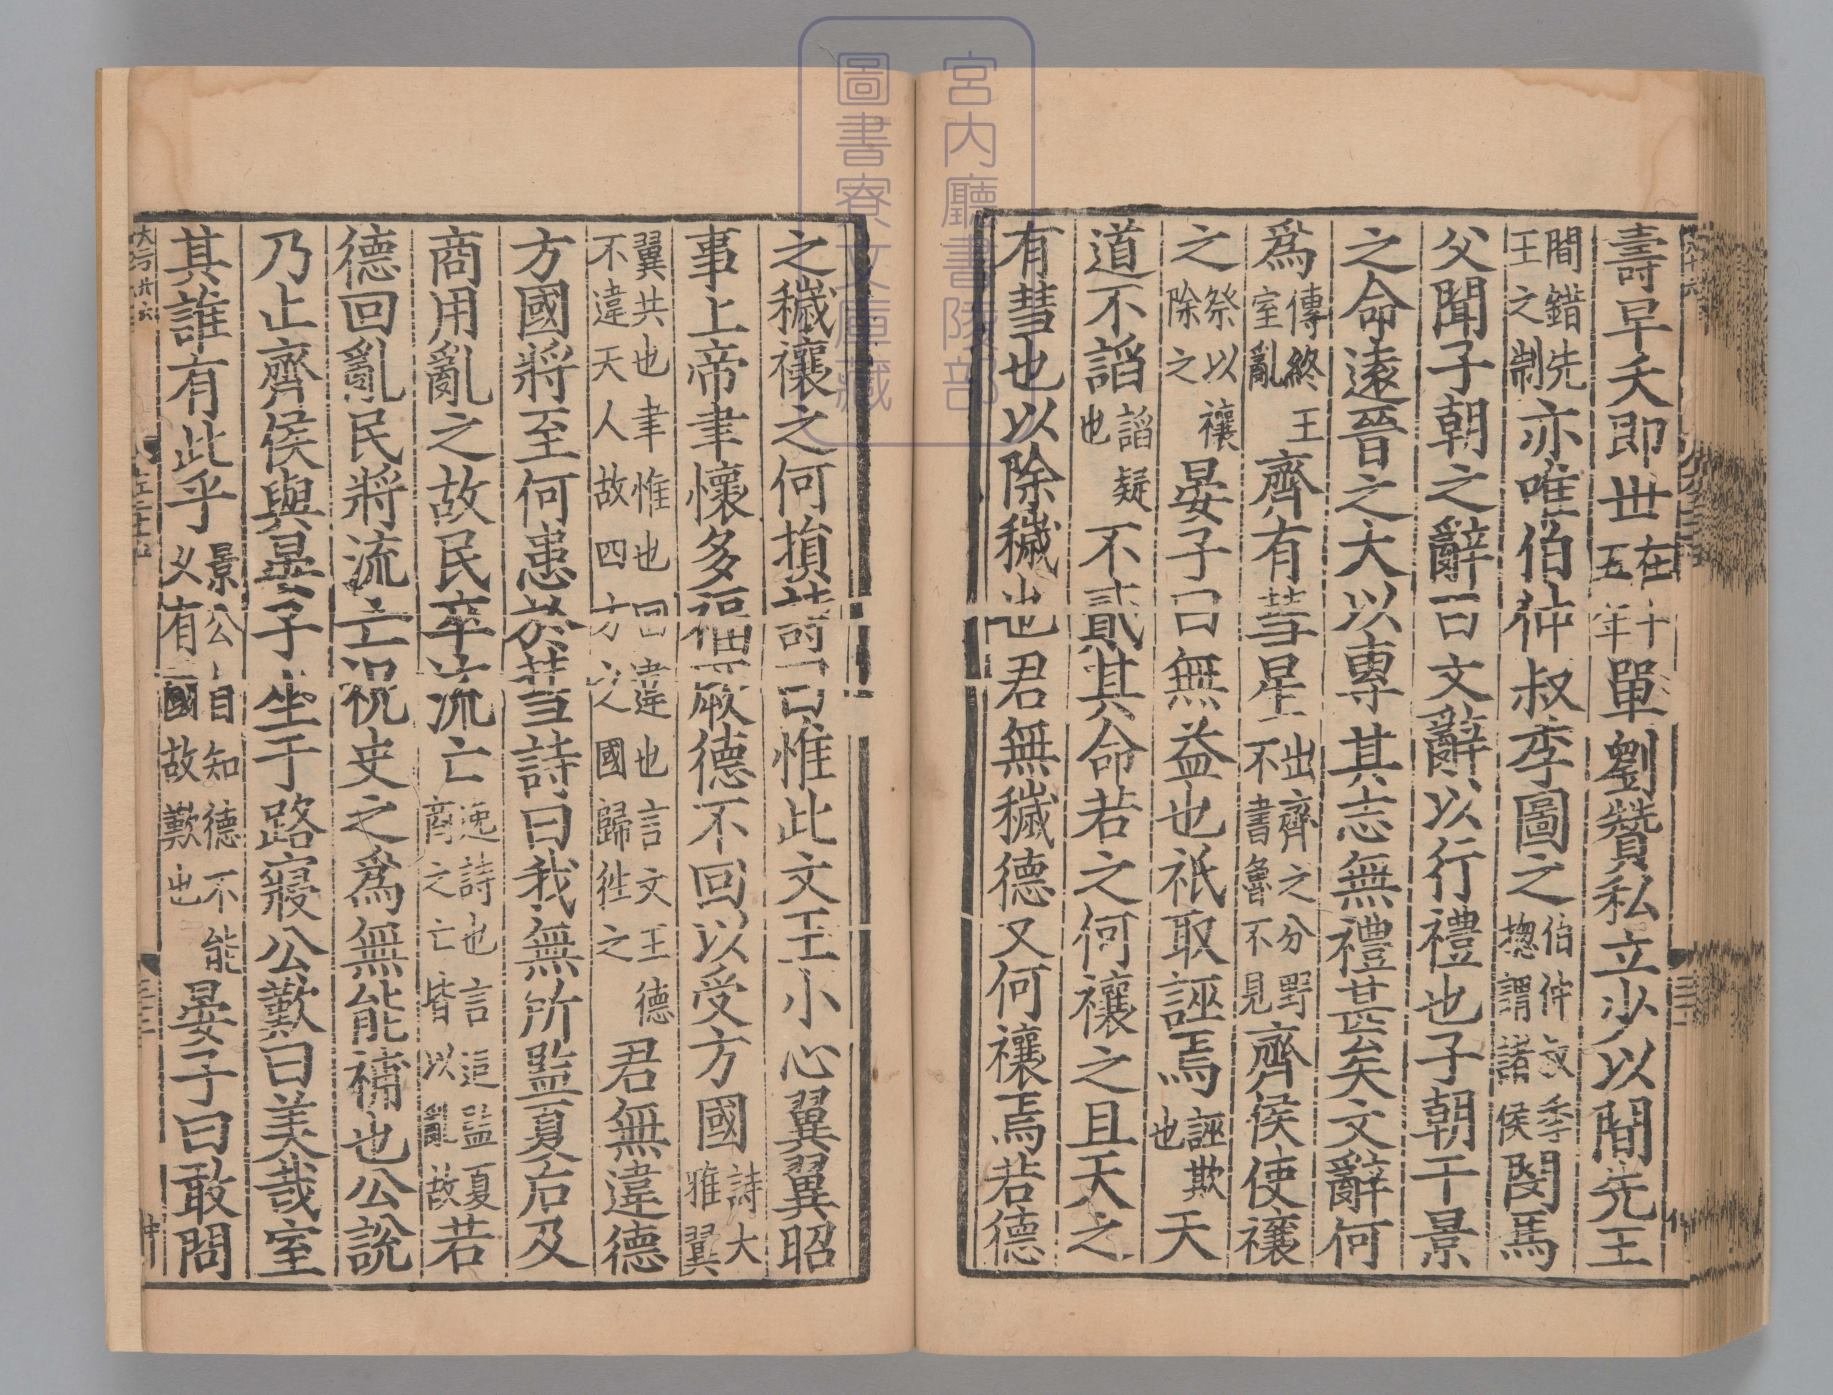 宮内廳書陵部
圖書寮文庫藏
壽早夭即世在十五年單劉贊私立少以間先王
間錯先王之制亦唯伯仲叔季圖之伯仲叔季揔謂諸侯閔馬
父聞子朝之辭曰文辭以行禮也子朝干景
之命遠晉之大以專其志無禮甚矣文辭何
爲傳終王室亂齊有彗星出齊之分野不書魯不見齊侯使禳
之祭以禳除之晏子曰無益也祇取誣焉誣欺也天
道不謟謟疑也不貳其命若之何禳之且天之
有彗也以除穢也君無穢德又何禳焉若德
之穢禳之何損詩曰惟此文王小心翼翼昭
事上帝聿懷多福厥德不回以受方國詩大雅翼
翼共也聿惟也回違也言文王德不違天人故四方之國歸徃之君無違德
方國將至何患於彗詩曰我無所監夏后及
商用亂之故民卒流亡逸詩也言追監夏商之亡皆以亂故若
德回亂民將流亡祝史之爲無能補也公說
乃止齊侯與晏子坐于路寢公歎曰美哉室
其誰有此乎景公自知德不能乂有國故歎也晏子曰敢問